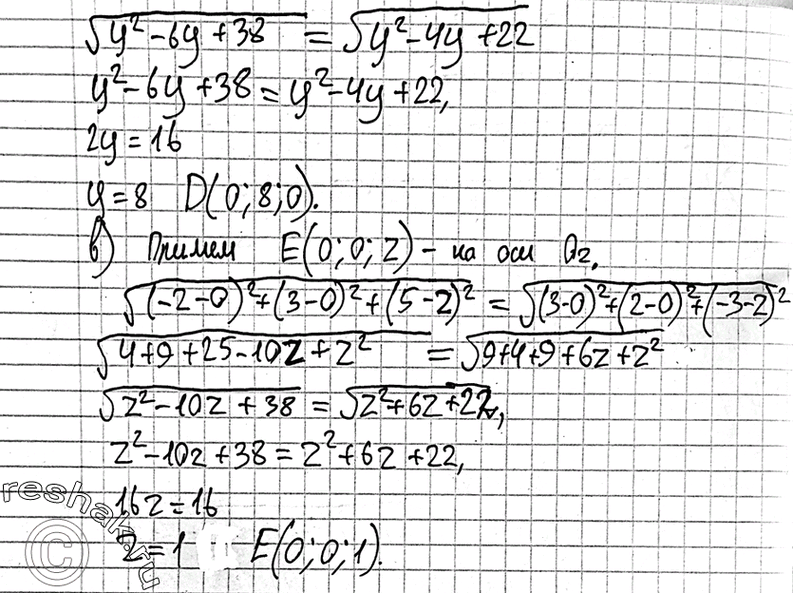 √(y²-6y+38) = √(y²-4y+22)
y²-6y+38 = y²-4y+22,
2y = 16
y = 8 D(0;8;0).
в) Примем E(0;0;z) - на оси Oz,
√((-2-0)²+(3-0)²+(5-z)²) = √((3-0)²+(2-0)²+(-3-z)²)
√(4+9+25-10z+z²) = √(9+4+9+6z+z²)
√(z²-10z+38) = √(z²+6z+22),
z²-10z+38 = z²+6z+22,
16z = 16
z = 1 E(0;0;1).
reshak.ru
©